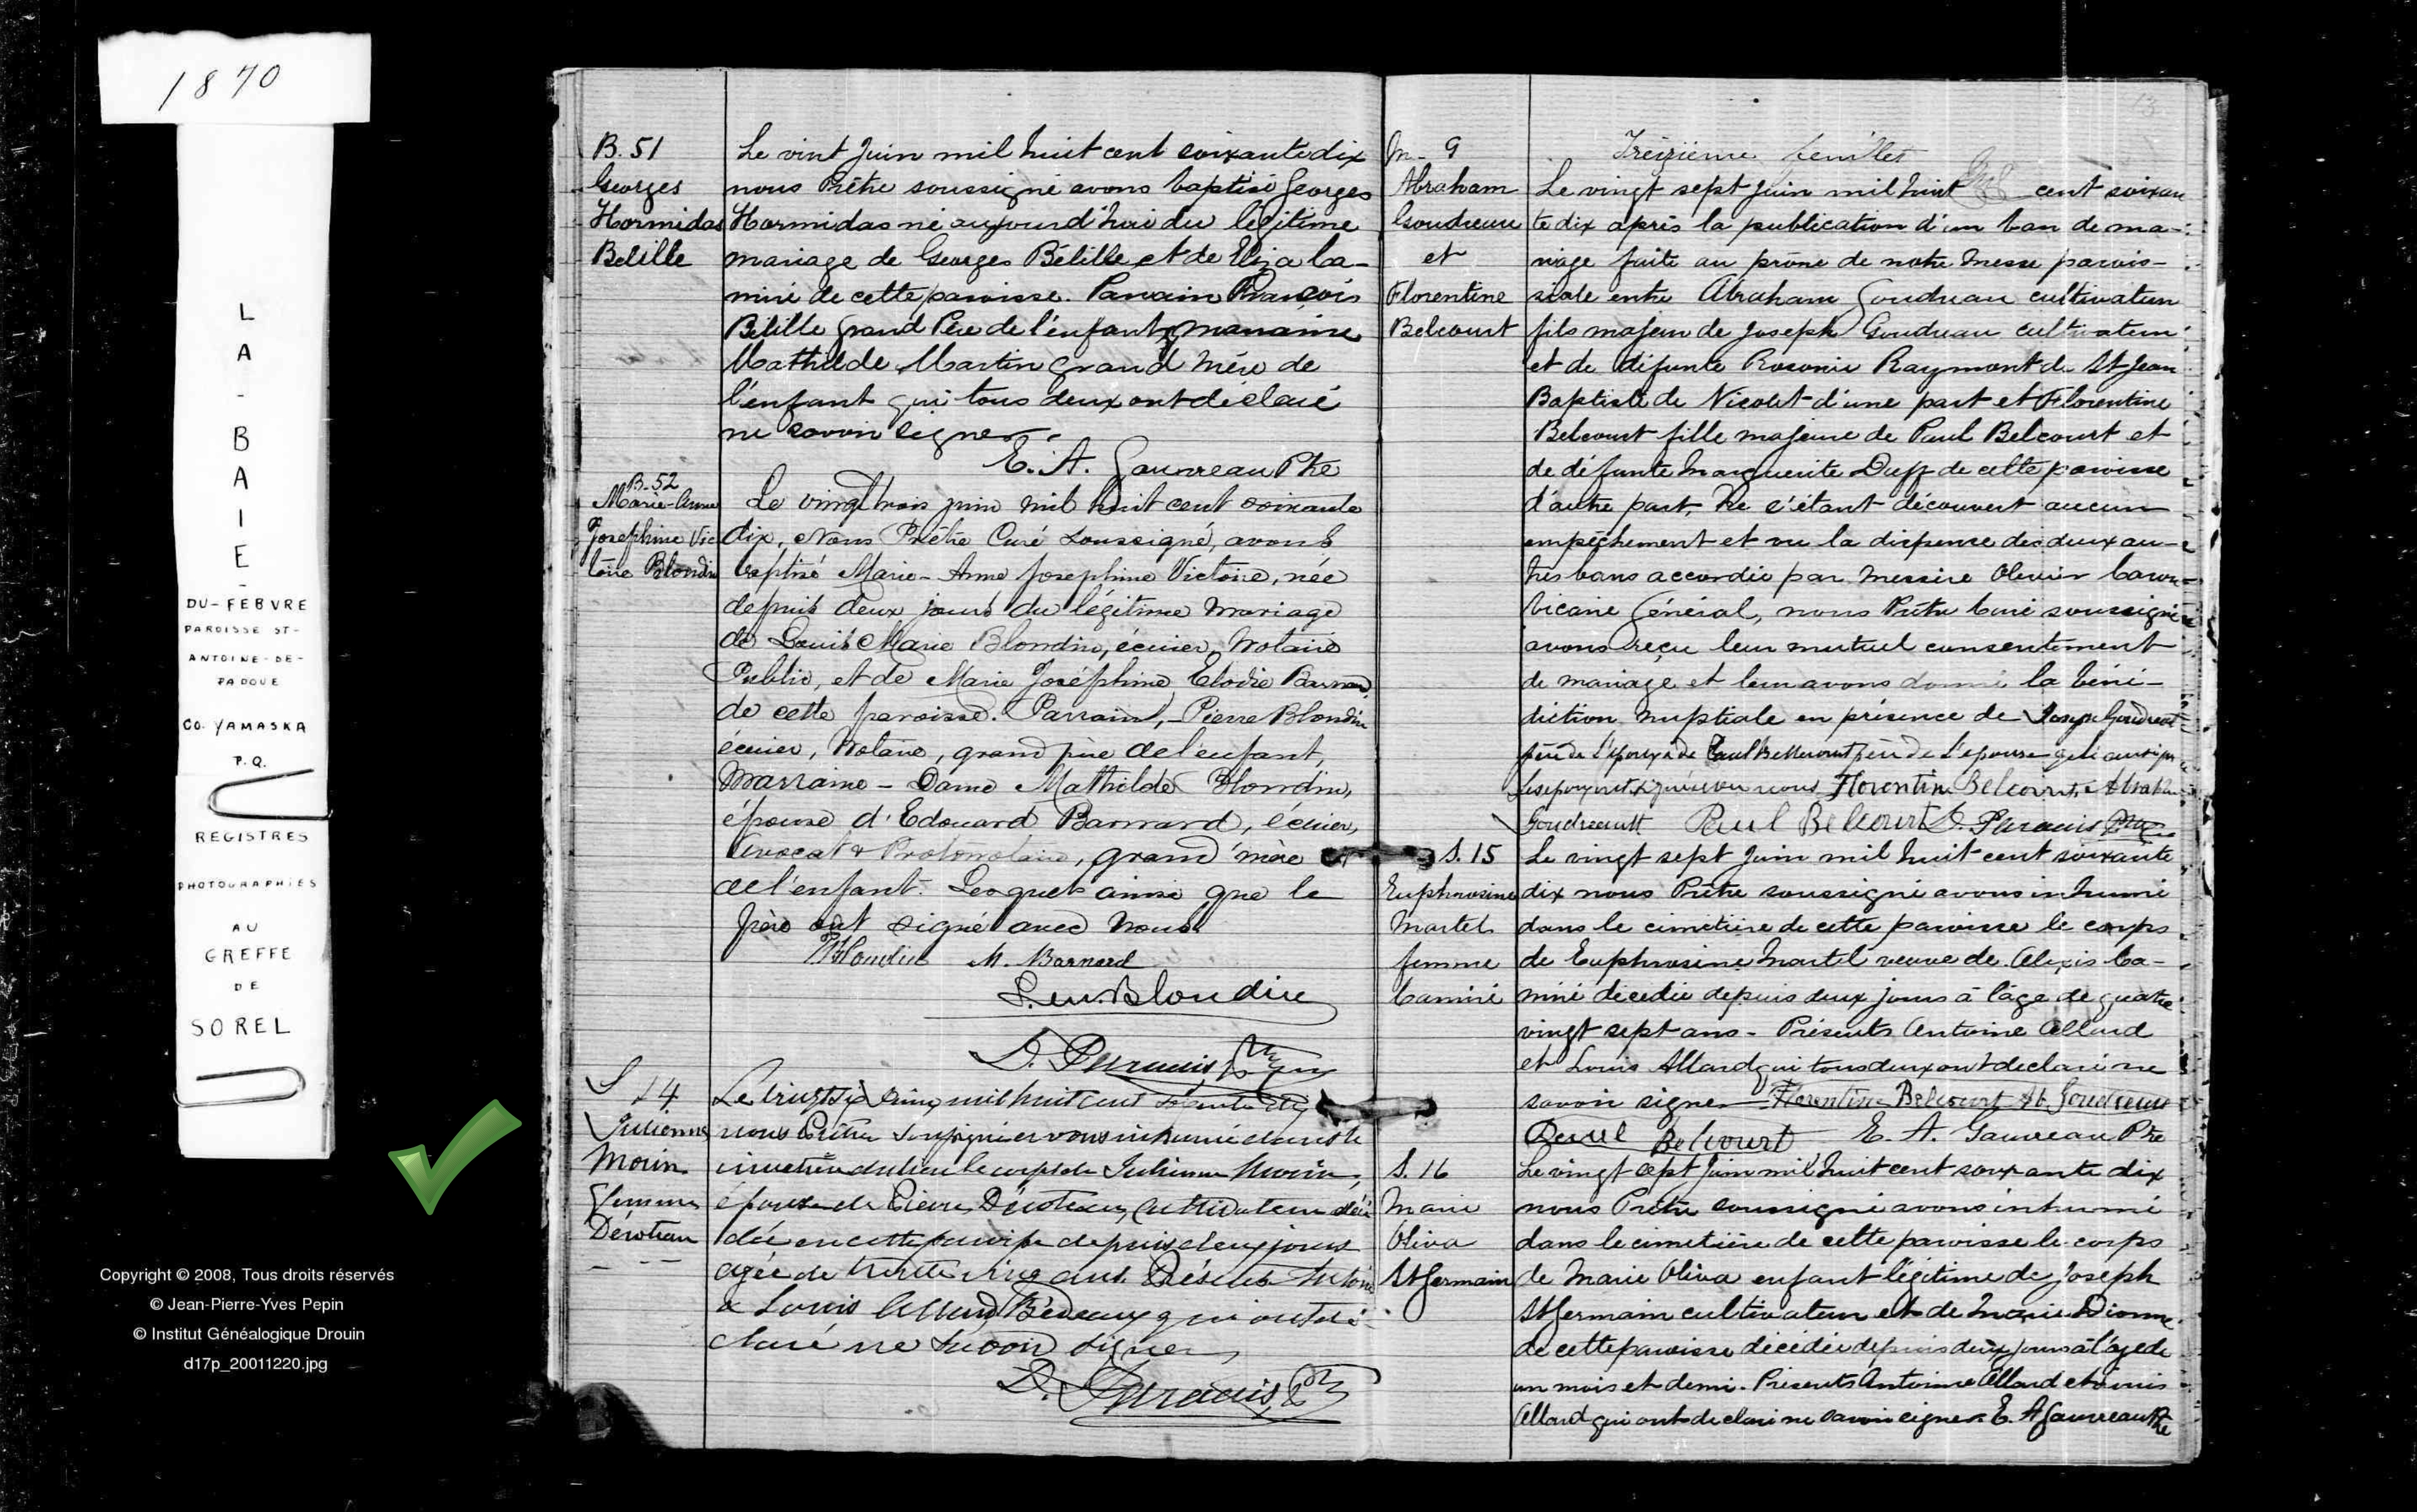 1870
LA-BAIE-
DU-FEBVRE
PAROISSE ST-
ANTOINE-DE-
PADOUE
CO. YAMASKA
P.Q.
REGISTRES
PHOTOGRAPHIES
AU
GREFFE
DE
SOREL
Copyright © 2008, Tous droits réservés
© Jean-Pierre-Yves Pepin
© Institut Généalogique Drouin
d17p_20011220.jpg
B. 51
Georges
Hormidas
Belille
Le vint Juin mil huit cent soixante dix
nous Prêtre soussigné avons baptisé Georges
Hormidas né aujourd'hui du légitime
mariage de Georges Bélille et de Eliza Ca-
miré de cette paroisse. Parrain François
Bélille Grand Père de l'enfant, marraine
Mathilde Martin Grand Mère de
l'enfant qui tous deux ont déclaré
ne savoir signer.
E. A. Gauvreau Ptre
B. 52
Marie-Anne
Josephine Vic
toire Blondin
Le vingt trois juin mil huit cent soixante
dix, Nous Prêtre Curé Soussigné, avons
baptisé Marie-Anne Josephine Victoire, née
depuis deux jours du légitime mariage
de Louis Marie Blondin, écuier, Notaire
Public, et de Marie Joséphine Elodie Barnard
de cette paroisse. Parrain, - Pierre Blondin
écuier, Notaire, grand père de l'enfant,
Marraine - Dame Mathilde Blondin,
épouse d'Edouard Barnard, écuier,
Avocat & Protonotaire, grand'mère
de l'enfant. Lesquels ainsi que le
père ont signé avec Nous.
PBlondin M. Barnard
L. M. Blondin
D. Paradis
S 14
Julienne
Morin
femme
Déroteau
Le vingt six Juin mil huit cent soixante dix
nous Prêtre soussigné avons inhumé dans le
cimetière du lieu le corps de Julienne Morin,
épouse de Pierre Déroteau, Cultivateur décé
dée en cette paroisse depuis deux jours
agée de trente cinq ans. Présents Antoine
& Louis Allard Bedeaux qui ont dé-
claré ne savoir signer,
D. Paradis
M. 9
Abraham
Goudreau
et
Florentine
Belcourt
Treizième feuillet
Le vingt sept Juin mil huit cent soixan
te dix après la publication d'un ban de ma-
riage faite au prône de notre Messe parois-
siale entre Abraham Goudreau cultivateur
fils majeur de Joseph Goudreau cultivateur
et de défunte Rosonie Raymont de St Jean
Baptiste de Nicolet d'une part et Florentine
Belcourt fille majeure de Paul Belcourt et
de défunte Marguerite Duff de cette paroisse
d'autre part, Ne s'étant découvert aucun
empêchement et vu la dispense des deux au-
tres bans accordée par Messire Olivier Caron
Vicaire Général, nous Prêtre Curé soussigné
avons reçu leur mutuel consentement
de mariage et leur avons donné la béné-
diction nuptiale en présence de Joseph Goudreau
père de l'époux & de Paul Bellecourt père de l'épouse
les époux ont signé avec nous Florentine Belcourt, Abraham
Goudreault Paul Belcourt D. Paradis
S. 15
Euphrosine
Martel
femme
Camiré
Le vingt sept Juin mil huit cent soixante
dix nous Prêtre soussigné avons inhumé
dans le cimetière de cette paroisse le corps
de Euphrosine Martel veuve de Alexis Ca-
miré décédée depuis deux jours à l'âge de quatre
vingt sept ans - Présents Antoine Allard
et Louis Allard qui tous deux ont déclaré ne
savoir signer Florentine Belcourt Ab. Goudreau
Paul Belcourt E. A. Gauvreau Ptre
S. 16
Marie
Oliva
St Germain
Le vingt sept Juin mil huit cent soixante dix
nous Prêtre soussigné avons inhumé
dans le cimetière de cette paroisse le corps
de Marie Oliva enfant légitime de Joseph
St Germain cultivateur et de Marie Dionne
de cette paroisse décédée depuis deux jours à l'âge de
un mois et demi. Présents Antoine Allard et Louis
Allard qui ont déclaré ne savoir signer. E. A Gauvreau Ptre